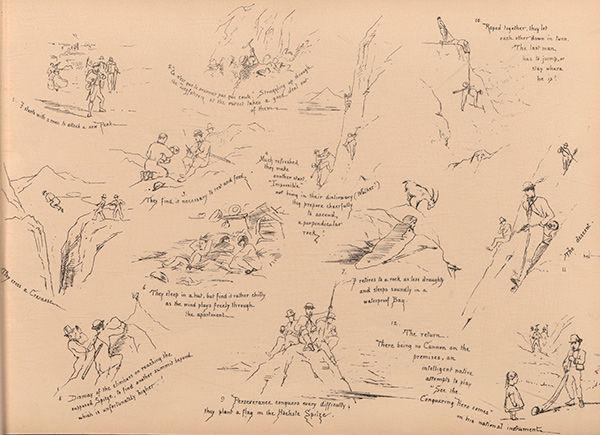 1. I starts with 2 men to attack a new Peak.
2. Struggling up through
the Mayfeldern, as the ascent takes a good deal out
of them.
3. They find it necessary to rest and feed.
4.
Much refreshed
they make
another start.
"Impossible"
not being in their dictionary (Whicher)
they prepare cheerfully
to ascend,
a perpendicular
rock!
They cross a Crevasse
6. They sleep in a hut, but find it rather chilly
as the wind plays freely through
the apartment.
7.
I retires to a rock as less draughty
and sleeps soundly in a
waterproof Bag.
8. Dismay of the climbers on reaching the
supposed Spitze, to find another summit beyond
which is unfortunately higher.
9 Perseverance conquers every difficulty;
they plant a flag on the Höchste Spitze.
10.
"Roped together, they let
each other down in turn.
The last man,
has to jump, or
stay where
he is!
11
The descent.
12.
The return.
There being no Cannon on the
premises, an
intelligent native
attempts to play
"See the
Conquering Hero comes"
on his national instrument.